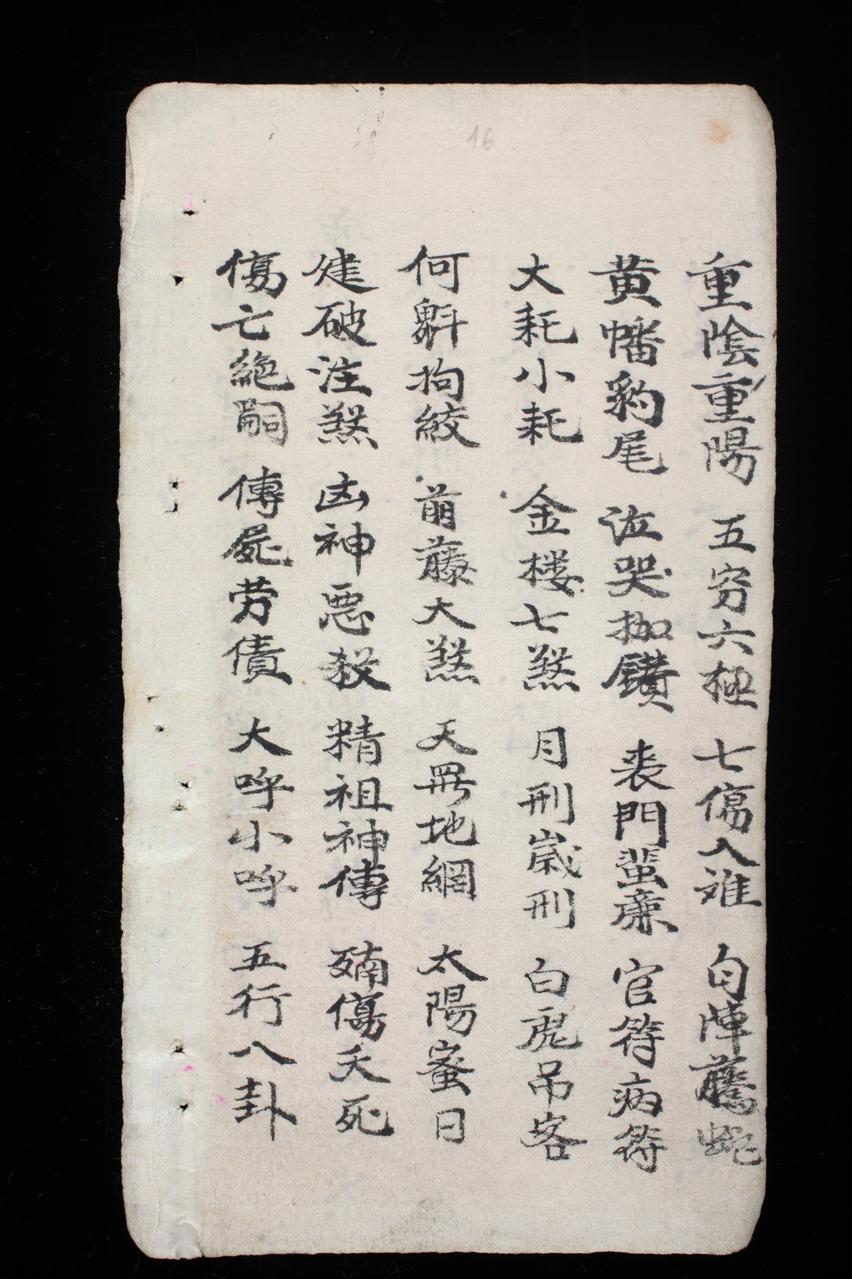 16
重陰重陽 五穷六極 七傷八难 勾陣騰蛇
黄幡豹尾 泣哭枷鐄 丧門蚕亷 官符病符
大耗小耗 金楼七煞 月刑嵗刑 白虎吊客
何魁拘絞 萠藤大煞 天羅地網 太陽蚤日
建破注煞 凶神悪殺 精祖神傳 殗傷夭死
傷亡絶嗣 傳屍劳債 大呼小呼 五行八卦